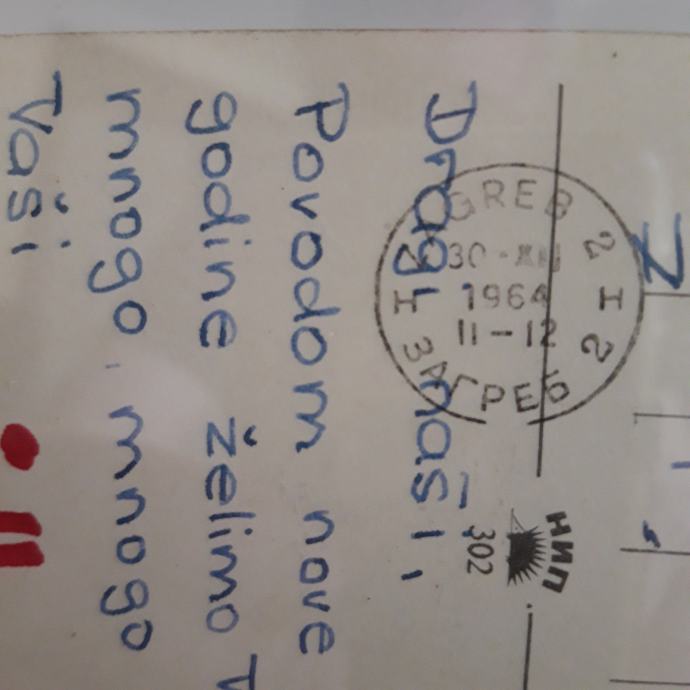 Dragi naši,
Povodom nove
godine želimo
mnogo, mnogo
Vaši
ZAGREB 2
30-XII
1964
11-12
ЗАГРЕБ 2
НИП
302